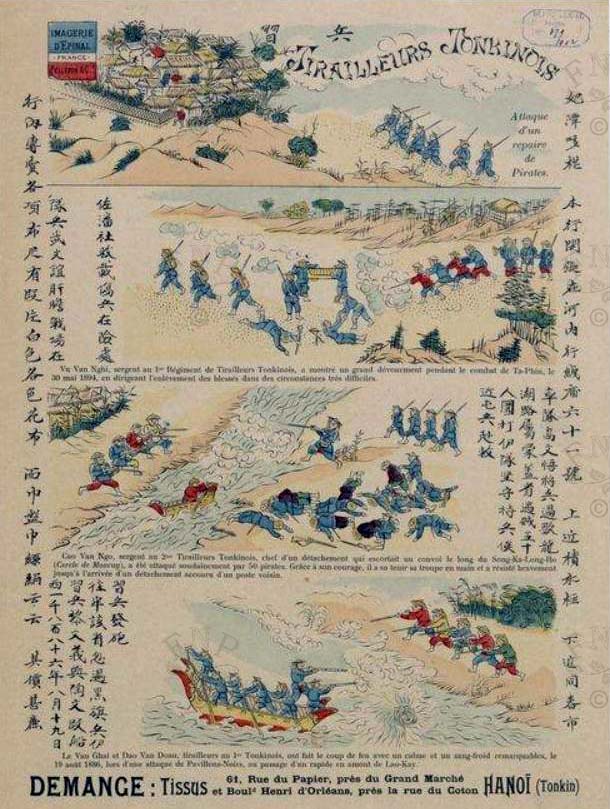 IMAGERIE
D'ÉPINAL
FRANCE
PELLERIN & Cie
習 兵
TIRAILLEURS TONKINOIS
Attaque
d'un
repaire
de
Pirates.
本行開鋪在河内行紙庸六十一號 上近積水柜 下近同春市
佐潘社救載傷兵在險處
隊兵武文誼肝膽戰場在
Vu Van Nghi, sergent au 1er Régiment de Tirailleurs Tonkinois, a montré un grand dévouement pendant le combat de Ta-Phin, le
30 mai 1894, en dirigeant l'enlèvement des blessés dans des circonstances très difficiles.
率隊高文悟將兵過歌龍
湖路屬蒙蓋有過賊五十
人圍打伊隊堅守待兵俟
近屯兵赴救
Cao Van Ngo, sergent au 2me Tirailleurs Tonkinois, chef d'un détachement qui escortait un convoi le long du Song-Ka-Long-Ho
(Cercle de Moncay), a été attaqué soudainement par 50 pirates. Grâce à son courage, il a su tenir sa troupe en main et a résisté bravement
jusqu'à l'arrivée d'un détachement accouru d'un poste voisin.
習兵發砲
習兵黎文義與陶文段船
西一千八百八十六年八月十九日
Le Van Ghai et Dao Van Doan, tirailleurs au 1er Tonkinois, ont fait le coup de feu avec un calme et un sang-froid remarquables, le
19 août 1886, lors d'une attaque de Pavillons-Noirs, au passage d'un rapide en amont de Lao-Kay.
行内專賣各項布尺有緞疋白色各色花布 西巾盤巾縑絹云云 其價甚廉
DEMANGE : Tissus 61, Rue du Papier, près du Grand Marché
et Boulᵈ Henri d'Orléans, près la rue du Coton HANOÏ (Tonkin)